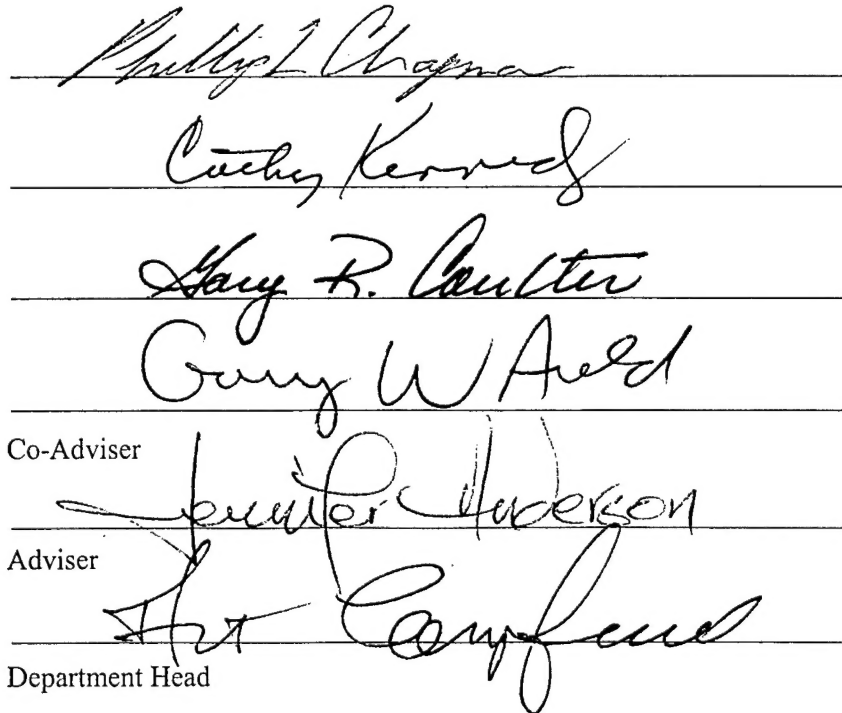 Phillip L Chapman
Cathy Kennedy
Gary R. Coulter
Garry W Auld
Co-Adviser
Jennifer Anderson
Adviser
Department Head